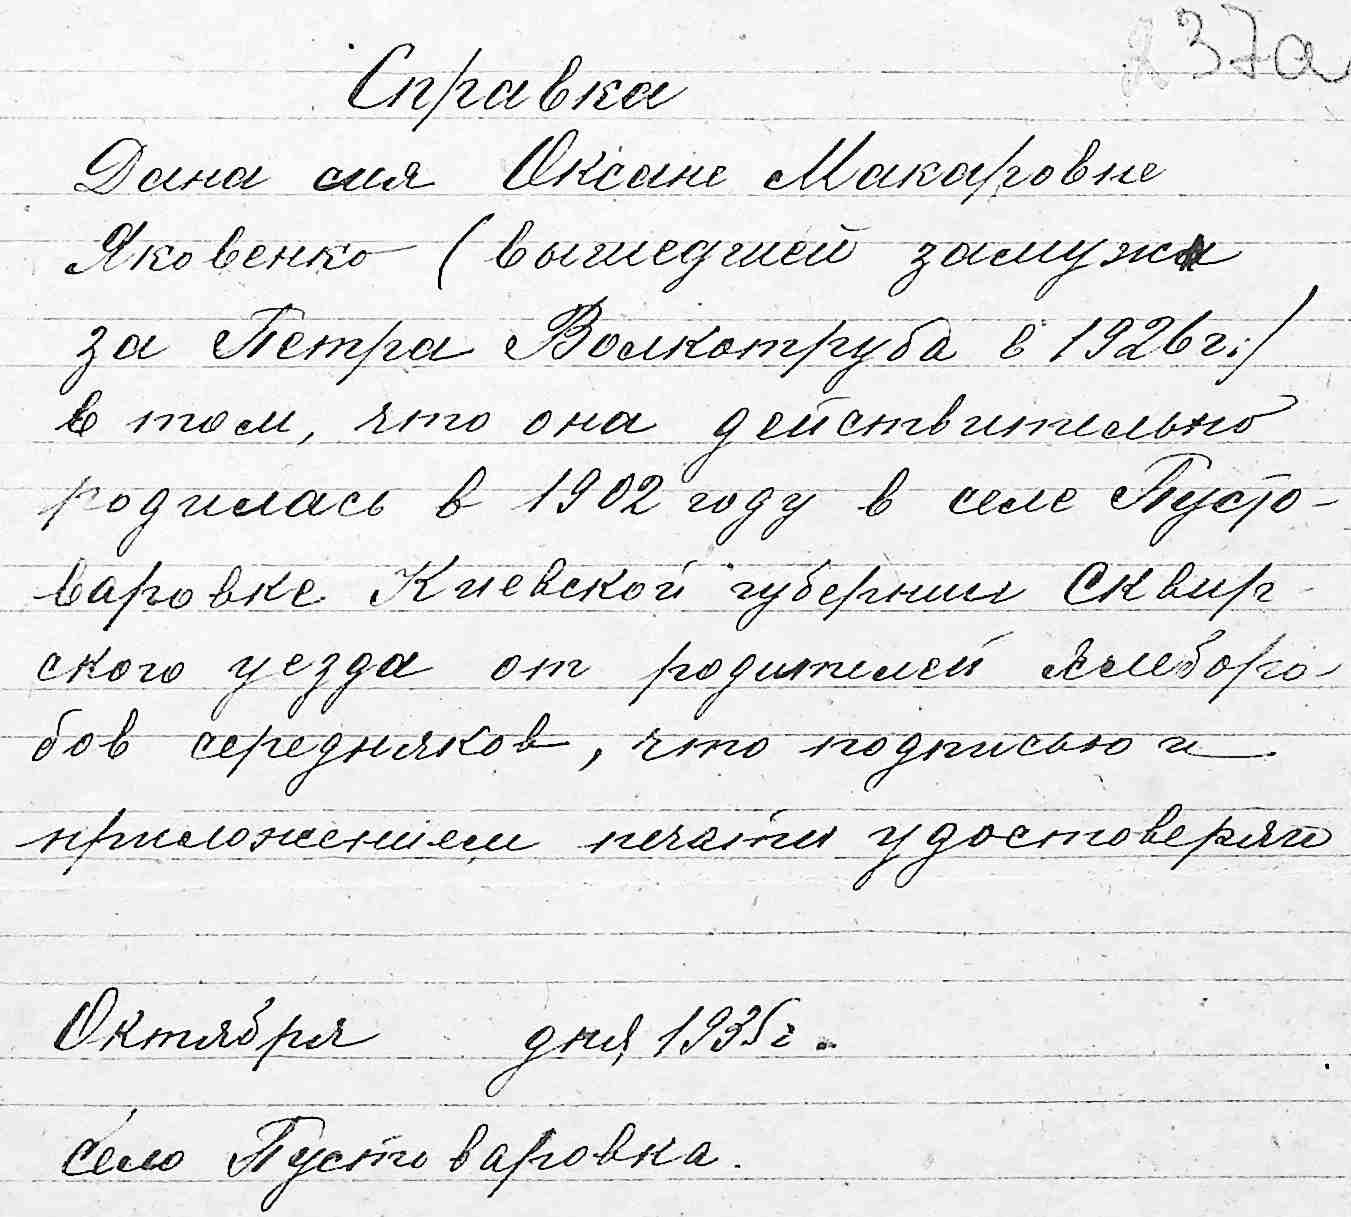 237а
Справка
Дана сия Оксане Макаровне
Яковенко (вышедшей замуж
за Петра Волкотруба в 1926 г.)
в том, что она действительно
родилась в 1902 году в селе Пусто-
варовке Киевской губернии Сквир-
ского уезда от родителей хлеборо-
бов середняков, что подписью и
приложением печати удостоверяю
Октября дня 1935 г.
село Пустоваровка.